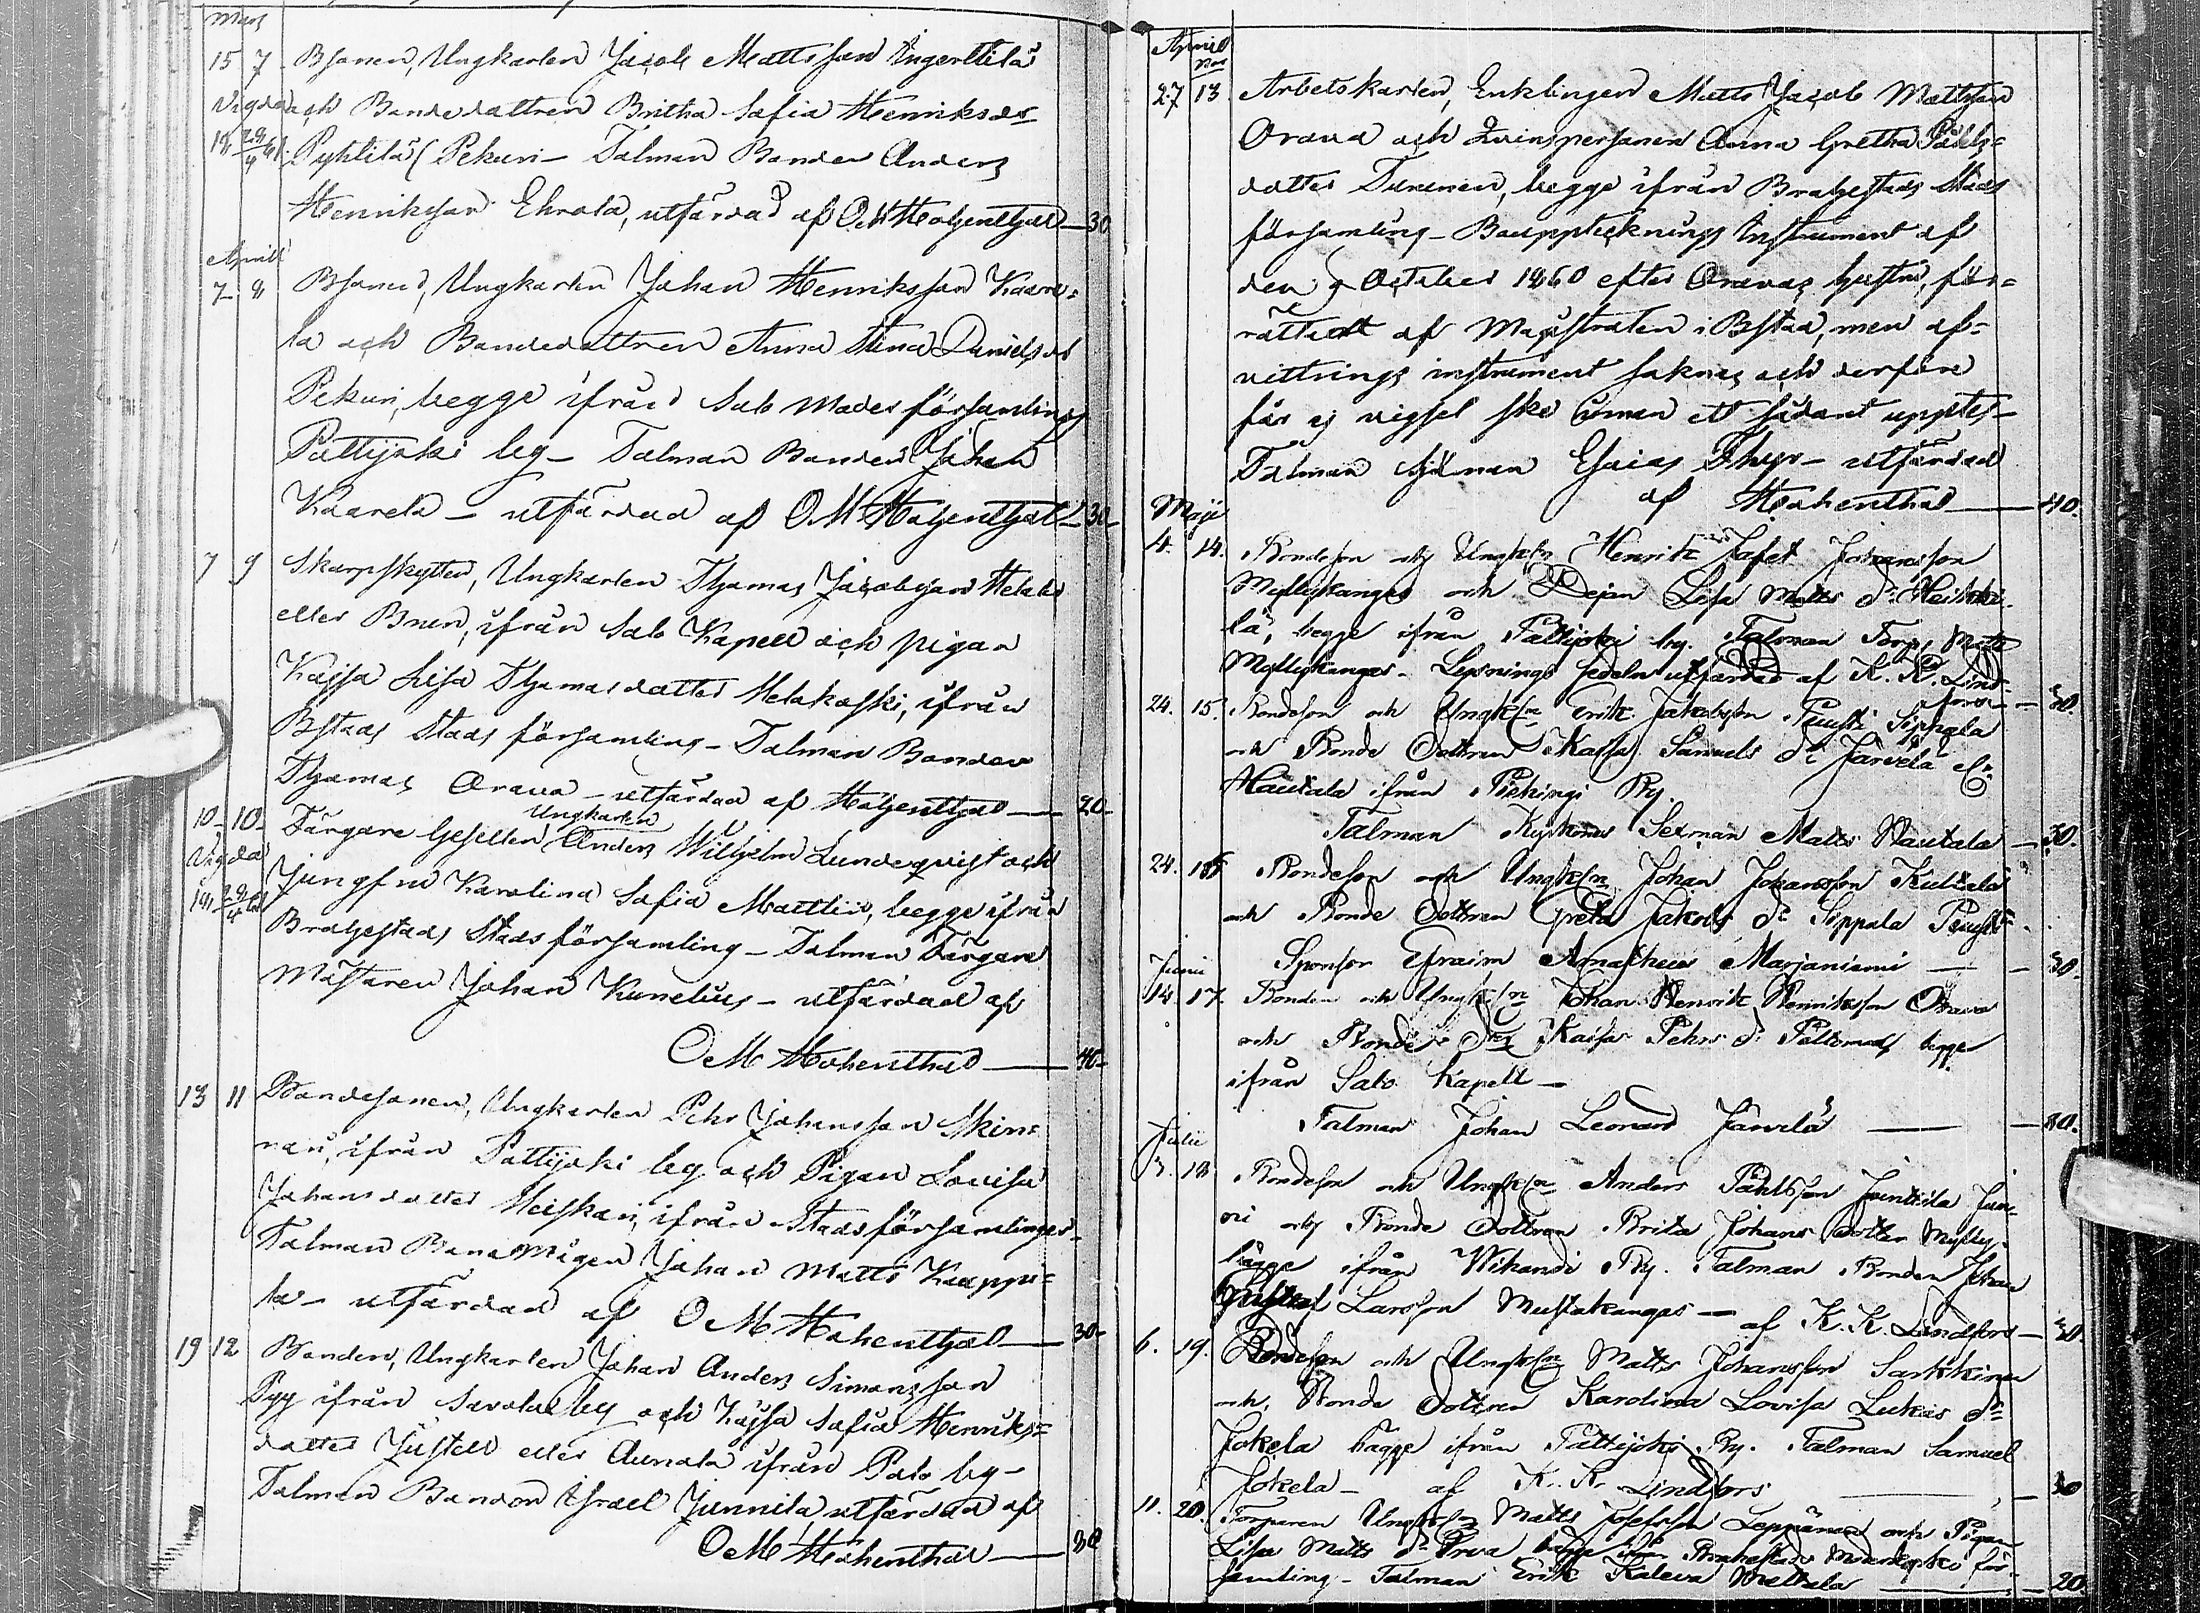 Mars
15 7 Bsonen, Ungkarlen Jacob Mattsson Ångerttilä
Vigda och Bondedottren Britha Sofia Henriksdr
18 28/4 61. Pyhtilä / Pekuri – Talman Bonden Anders
Henriksson Ehrola, utfärdad af OM Hohenthal — 30
April
7 8 Bsonen, Ungkarlen Johan Henriksson Kaare-
la och Bondedottren Anna Stina Danielsdr
Pekuri, begge ifrån Salo Moder församling
Pattijoki by – Talman Bonden Johan
Kaarela – utfärdad af OM Hohenthal – 30 –
7 9 Skarpskytten, Ungkarlen Thomas Jacobsson
eller Brun, ifrån Salo Kapell och pigan
Kajsa Lisa Thomasdotter Melakoski, ifrån
Bstads Stads församling – Talman Bonden
Thomas Orava – utfärdad af Hohenthal — 20 –
10 – 10 – Färgare Gesellen Ungkarlen Anders Wilhelm Lundeqvist och
Vigda Jungfru Karolina Sofia Mattlin, begge ifrån
18 28/4 61 Brahestads Stadsförsamling – Talman Färgare
Mästaren Johan Kunelius – utfärdad af
OM Hohenthal — 40 –
13 11 Bondesonen, Ungkarlen Pehr Johansson Skin-
nari, ifrån Pattijoki by och Pigan Lovisa
Johansdotter Heiskari, ifrån Stadsförsamlingen –
Talman Bonemågen Johan Matts Kauppi-
la – utfärdad af OM Hohenthal — 30 –
19 12 Bonden, Ungkarlen Johan Anders Simonsson
Pyy ifrån Savolax by och Kajsa Sofia Henriks-
dotter Justell eller Aunola ifrån Palo by –
Talman Bonden Israel Junnila utfärdad af
OM Hohenthal — 30
April
27 13 Arbetskarlen, Enklingen Matts Jacob Mattsson
Orava och Qvinspersonen Anna Gretha Påhls-
dotter Turunen, begge ifrån Brahestads Stads
församling – Bouppteknings Instrument af
den 9 October 1860 efter Oravas hustru, för-
rättadt af Magistraten i Bstad, men af-
vittrings instrument saknas och derföre
får ej vigsel ske innan ett sådant upptes –
Talman Sjöman Esaias Thur – utfärdad
af Hohenthal — 40.
Maji
4. 14. Bondeson och Ungkln Henrik Jafet Johansson
Myllykangas och Pejan Lisa Matts dr Heikki-
lä, begge ifrån Pattijoki by. Talman Torp. Matts
Myllykangas – Lysnings sedeln utfärdad af K. K. Lind-
fors — 30.
24. 15. Bondeson och Ungkln Erik Jakobsson Ruusti Sippala
och Bonde Dottren Kaisa Samuels dr Järvelä el.
Hautala ifrån Piehingi By.
Talman Kyrkans Sexman Matts Hautala — 30.
24. 16 Bondeson och Ungkln Johan Johansson Kultala
och Bonde Dottren Greta Jakobs dr Sippala Ruusti.
Sponsor Efraim Marjaniemi — 30.
Junii
14. 17. Bonden och Ungkln Johan Henrik Henriksson Orava
och Bonde Dtr Kaisa Pehrs dr Paltomaa, begge
ifrån Salo Kapell –
Talman Johan Leonard Järvelä — 30.
Julii
3. 18 Bondeson och Ungkln Anders Påhlsson Junttila Jun-
ni och Bonde Dottren Brita Johans Dotter Mylly-
bägge ifrån Wihandi By. Talman Bonden Johan
Gustaf Larsson Mustakangas — af K. K. Lindfors — 30
6. 19. Bondeson och Ungkln Matts Johansson Sarkkinen
och Bonde Dottren Karolina Lovisa Lukas dr
Jokela bägge ifrån Pattijoki By. Talman Samuel
Jokela – af K. K. Lindfors — 30
11. 20. Torparen Ungkln Matts Josefsson Leppänen och Pigan
Lisa Matts dr Orva begge ifrån Brahestads Moderkyrko för-
samling – Talman Erik Kaleva Mettala — 20.